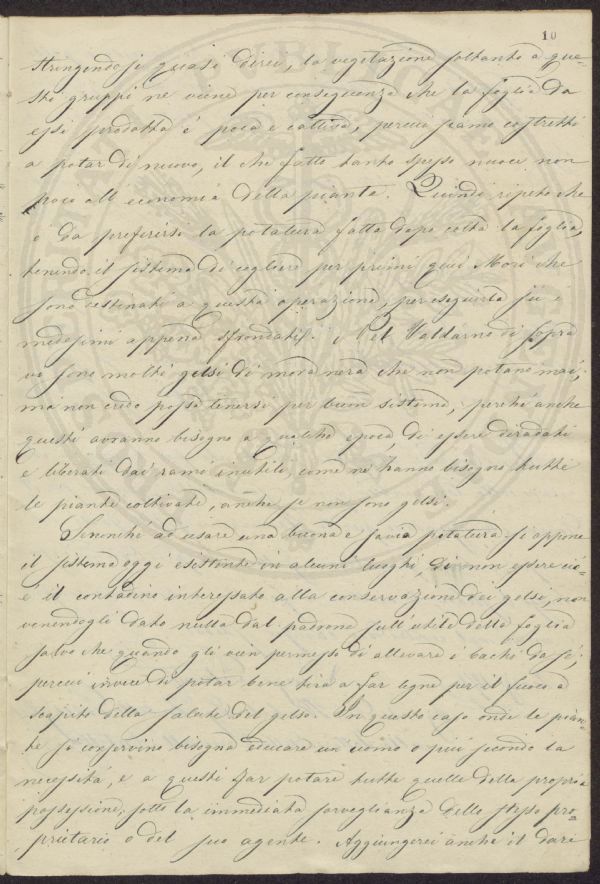 10
stringendosi quasi direi, la vegetazione soltanto a que=
sti gruppi ne viene per conseguenza che la foglia da
essi prodotta é poca e cattiva, percui siamo costretti
a potar di nuovo, il che fatto tanto spesso nuoce non
poco all'economia della pianta. Quindi ripeto che
é da preferirsi la potatura fatta dopo colta la foglia,
tenendo il sistema di cogliere per primi quei Mori che
sono destinati a questa operazione, per eseguirla su i
medesimi appena sfrondati. Nel Valdarno di sopra
vi sono molti gelsi di mora nera che non potano mai;
ma non credo possa tenersi per buon sistema, perché anche
questi avranno bisogno a qualche epoca, di essere diradati
e liberati dai rami inutili, come ne hanno bisogno tutte
le piante coltivate, anche se non sono gelsi.
Senonché ad usare una buona e savia potatura si oppone
il sistema oggi esistente in alcuni luoghi, di non essere cio=
é il contadino interessato alla conservazione dei gelsi, non
venendogli dato nulla dal padrone sull'utile della foglia
salvo che quando gli vien permesso di allevare i bachi da sé;
percui invece di potar bene tira a far legne per il fuoco a
scapito della salute del gelso. In questo caso onde le pian=
te si conservino bisogna educare un uomo o piú secondo la
necessitá, e a questi far potare tutte quelle della propria
possessione, sotto la immediata sorveglianza dello stesso pro=
prietario o del suo agente. Aggiungerei anche il dare